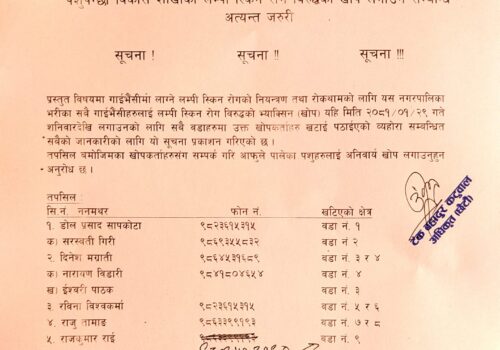 पशुपन्छी विकास शाखाको लम्पी स्किन रोग विरुद्धको खोप लगाउने सम्बन्धि
अत्यन्त जरुरी
सूचना ! सूचना !! सूचना !!!
प्रस्तुत विषयमा गाईभैंसीमा लाग्ने लम्पी स्किन रोगको नियन्त्रण तथा रोकथामको लागि यस नगरपालिका
भरीका सबै गाईभैंसीहरुलाई लम्पी स्किन रोग विरुद्धको भ्याक्सिन (खोप) यहि मिति २०८१/०१/२९ गते
शनिवारदेखि लगाउनको लागि सबै वडाहरुमा उक्त खोपकर्ताहरु खटाई पठाईएको व्यहोरा सम्बन्धित
सबैको जानकारीको लागि यो सूचना प्रकाशन गरिएको छ ।
तपसिल बमोजिमका खोपकर्ताहरुसंग सम्पर्क गरि आफुले पालेका पशुहरुलाई अनिवार्य खोप लगाउनुहुन
अनुरोध छ ।
तपसिल:
सि.नं. ननमथर फोन नं. खटिएको क्षेत्र
१. डोल प्रसाद सापकोटा ९८२३६१५३१५ वडा नं. १
क. सरस्वती गिरी ९८६९३५५८३२ वडा नं. २
२. दिनेश मग्राती ९८६४५३१६८९ वडा नं. ३ र ४
क. नारायण विडारी ९८४१८०४६५४ वडा नं. ४
ख. ईश्वरी पाठक वडा नं. ३
३. रविना विश्वकर्मा ९८२३६१५३१५ वडा नं. ५ र ६
४. राजु तामाङ ९८६३३९९१९३ वडा नं. ७ र ८
५. राजकुमार राई वडा नं. ९
टेक बहादुर कटुवाल
अधिकृत (छैटौं)